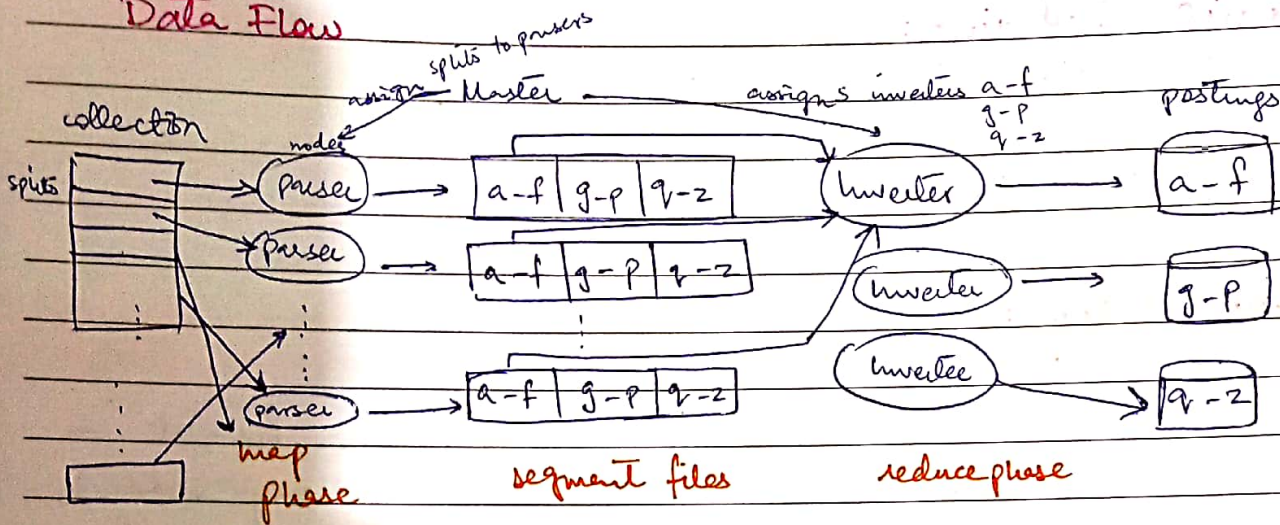 Data Flow
assign splits to prusers
Master
assigns inverters a-f
g-p
q-z
postings
collection
nodes
splits
parser
a-f g-p q-z
Inverter
a-f
parser
a-f g-p q-z
Inverter
g-p
Inverter
parser
a-f g-p q-z
q-z
map
phase
segment files
reduce phase